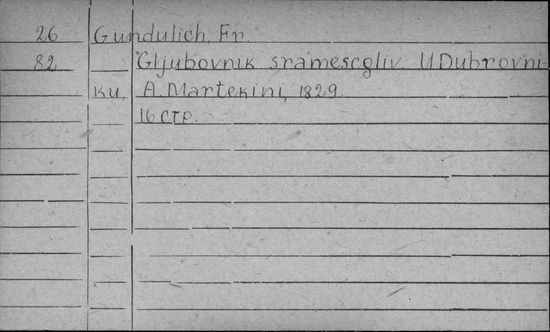 26 Gundulich, Fr.
82 Gljubovnik sramescgliv U Dubrovni-
ku, A. Martekini, 1829.
16 стр.